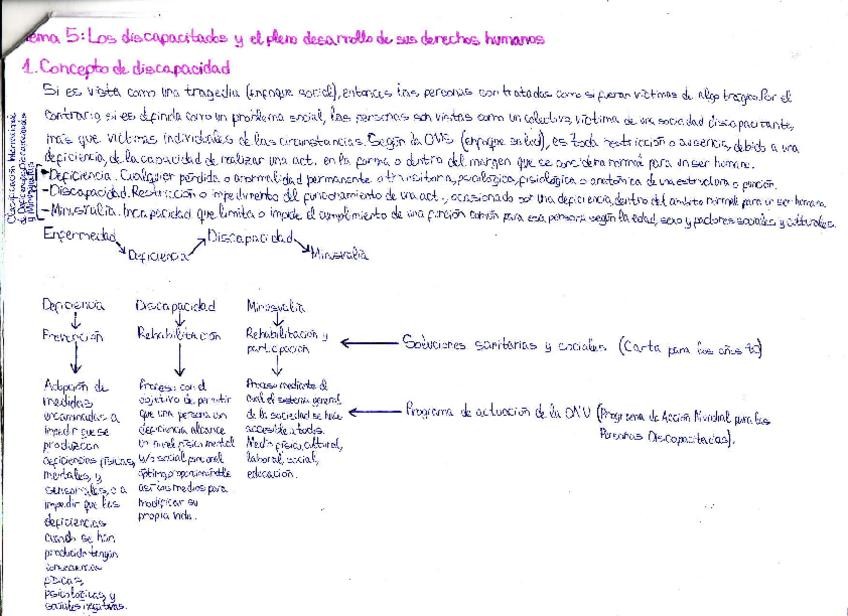 Tema 5: Los discapacitados y el pleno desarrollo de sus derechos humanos
1. Concepto de discapacidad
Si es vista como una tragedia (enfoque social), entonces las personas son tratadas como si fueran víctimas de algo trágico. Por el
contrario, si es definida como un problema social, las personas son vistas como un colectivo, víctima de una sociedad discapacitante,
más que víctimas individuales de las circunstancias. Según la OMS (enfoque salud), es toda restricción o ausencia, debido a una
deficiencia, de la capacidad de realizar una act. en la forma o dentro del margen que se considera normal para un ser humano.
Clasificación Internacional
de Deficiencias, Discapacidades
y Minusvalía
-Deficiencia. Cualquier pérdida o anormalidad permanente o transitoria, psicológica, fisiológica o anatómica de una estructura o función.
-Discapacidad. Restricción o impedimento del funcionamiento de una act., ocasionado por una deficiencia, dentro del ámbito normal para un ser humano.
-Minusvalía. Incapacidad que limita o impide el cumplimiento de una función común para esa persona según la edad, sexo y factores sociales y culturales.
Enfermedad
Deficiencia
Discapacidad
Minusvalía
Deficiencia
Prevención
Adopción de
medidas
encaminadas a
impedir que se
produzcan
deficiencias físicas,
mentales, y
sensoriales, o a
impedir que las
deficiencias
cuando se han
producido tengan
consecuencias
físicas,
psicológicas y
sociales negativas.
Discapacidad
Rehabilitación
Proceso con el
objetivo de permitir
que una persona con
deficiencia alcance
un nivel físico, mental
y/o social funcional
óptimo, proporcionándole
así los medios para
modificar su
propia vida.
Minusvalía
Rehabilitación y
participación
Proceso mediante el
cual el sistema general
de la sociedad se hace
accesible a todos.
Medio físico, cultural,
laboral, social,
educación.
Soluciones sanitarias y sociales (Carta para los años 80)
Programa de actuación de la ONU (Programa de Acción Mundial para las
Personas Discapacitadas).